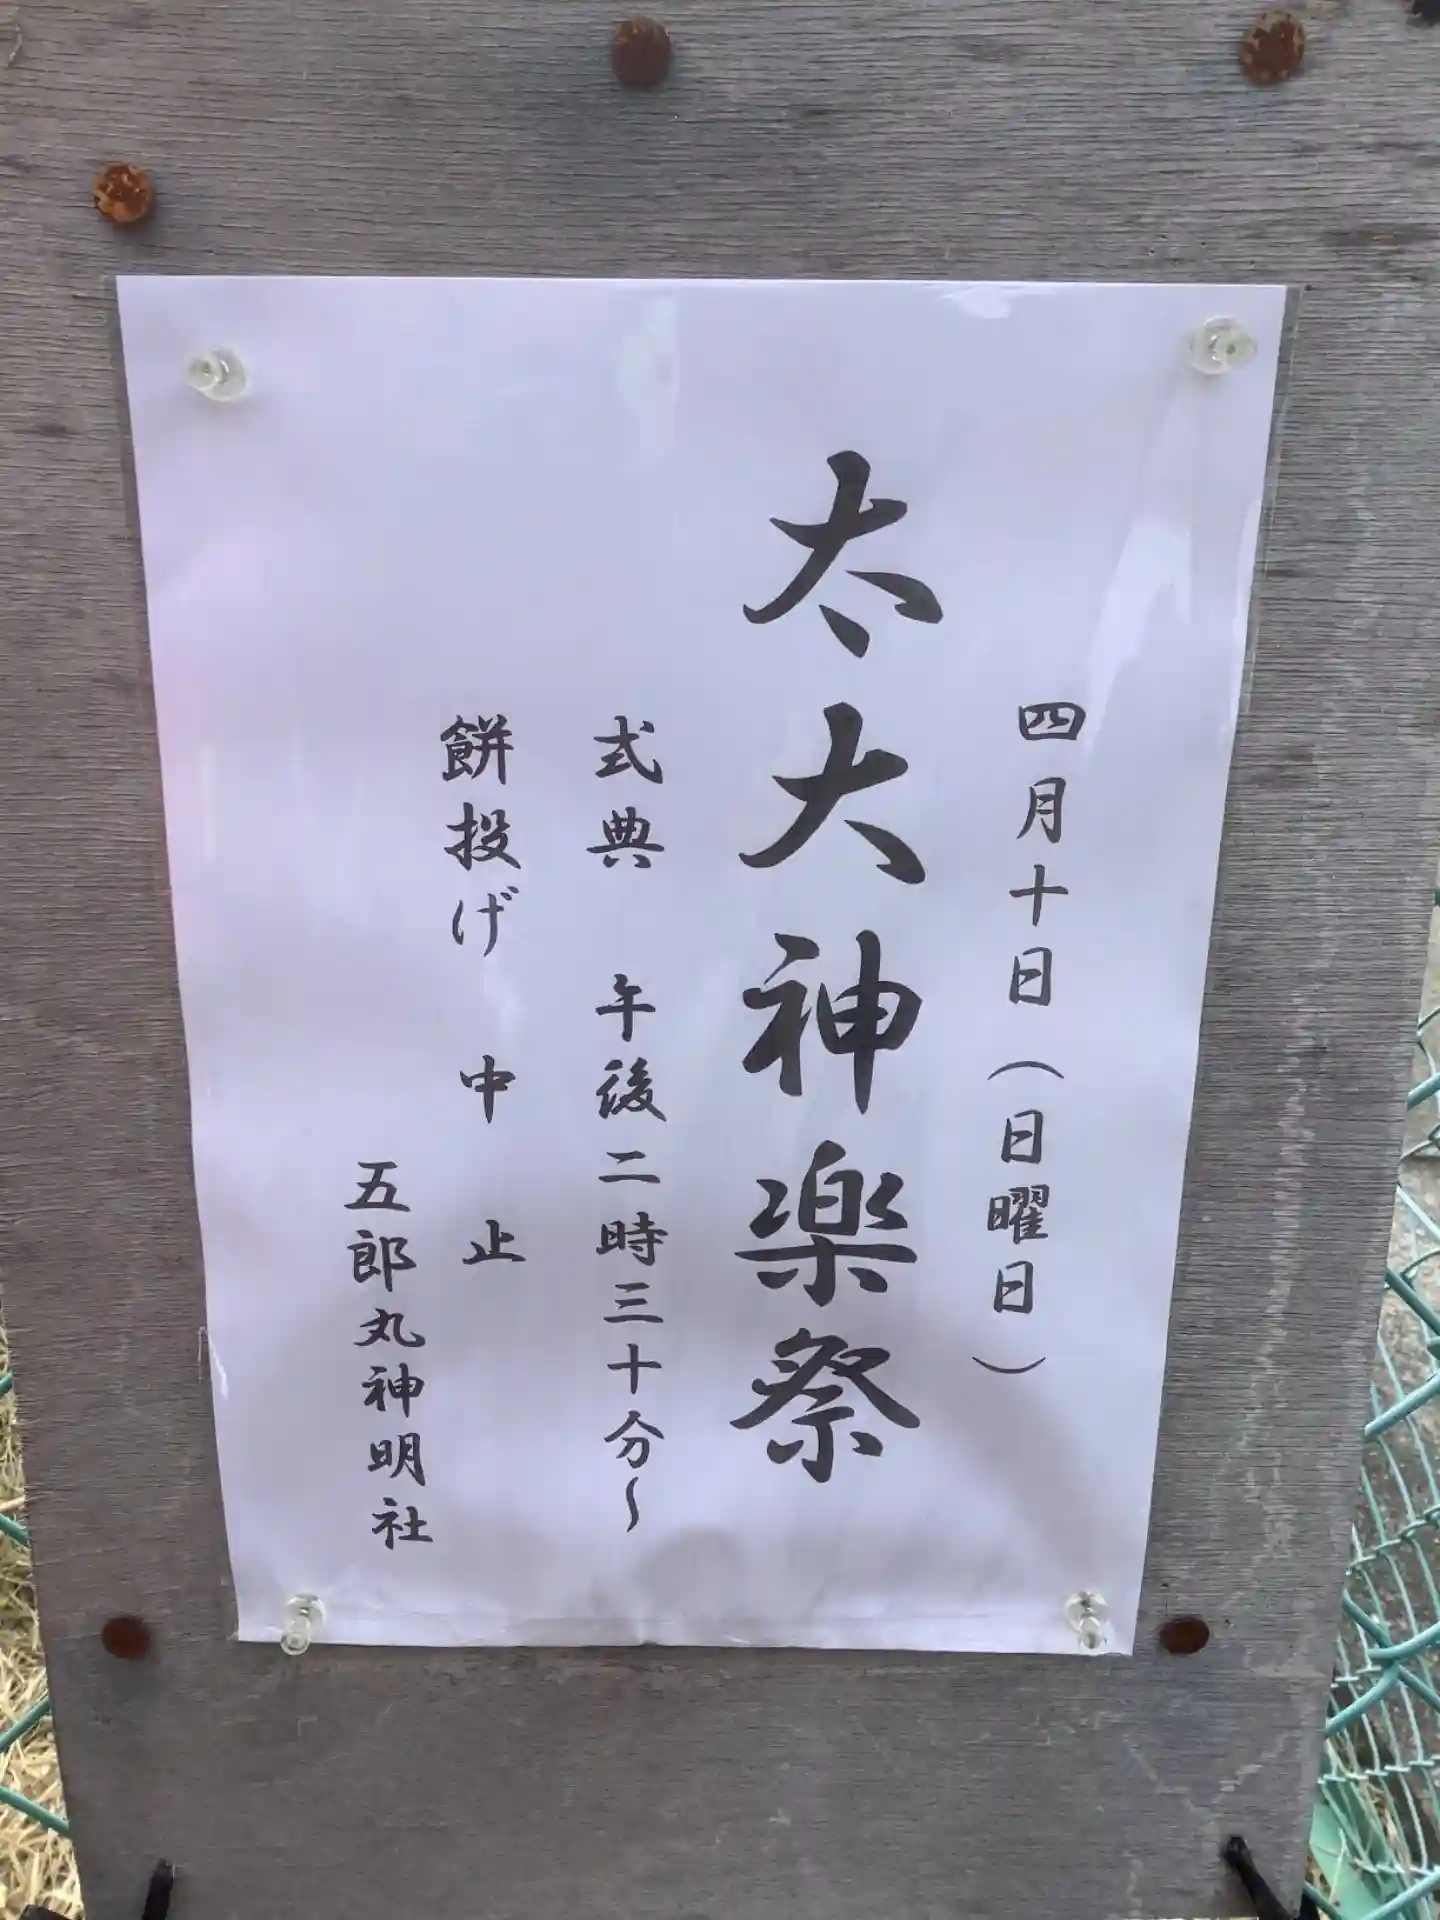 四月十日（日曜日）
太大神楽祭
式典　午後二時三十分～
餅投げ　中　止
五郎丸神明社